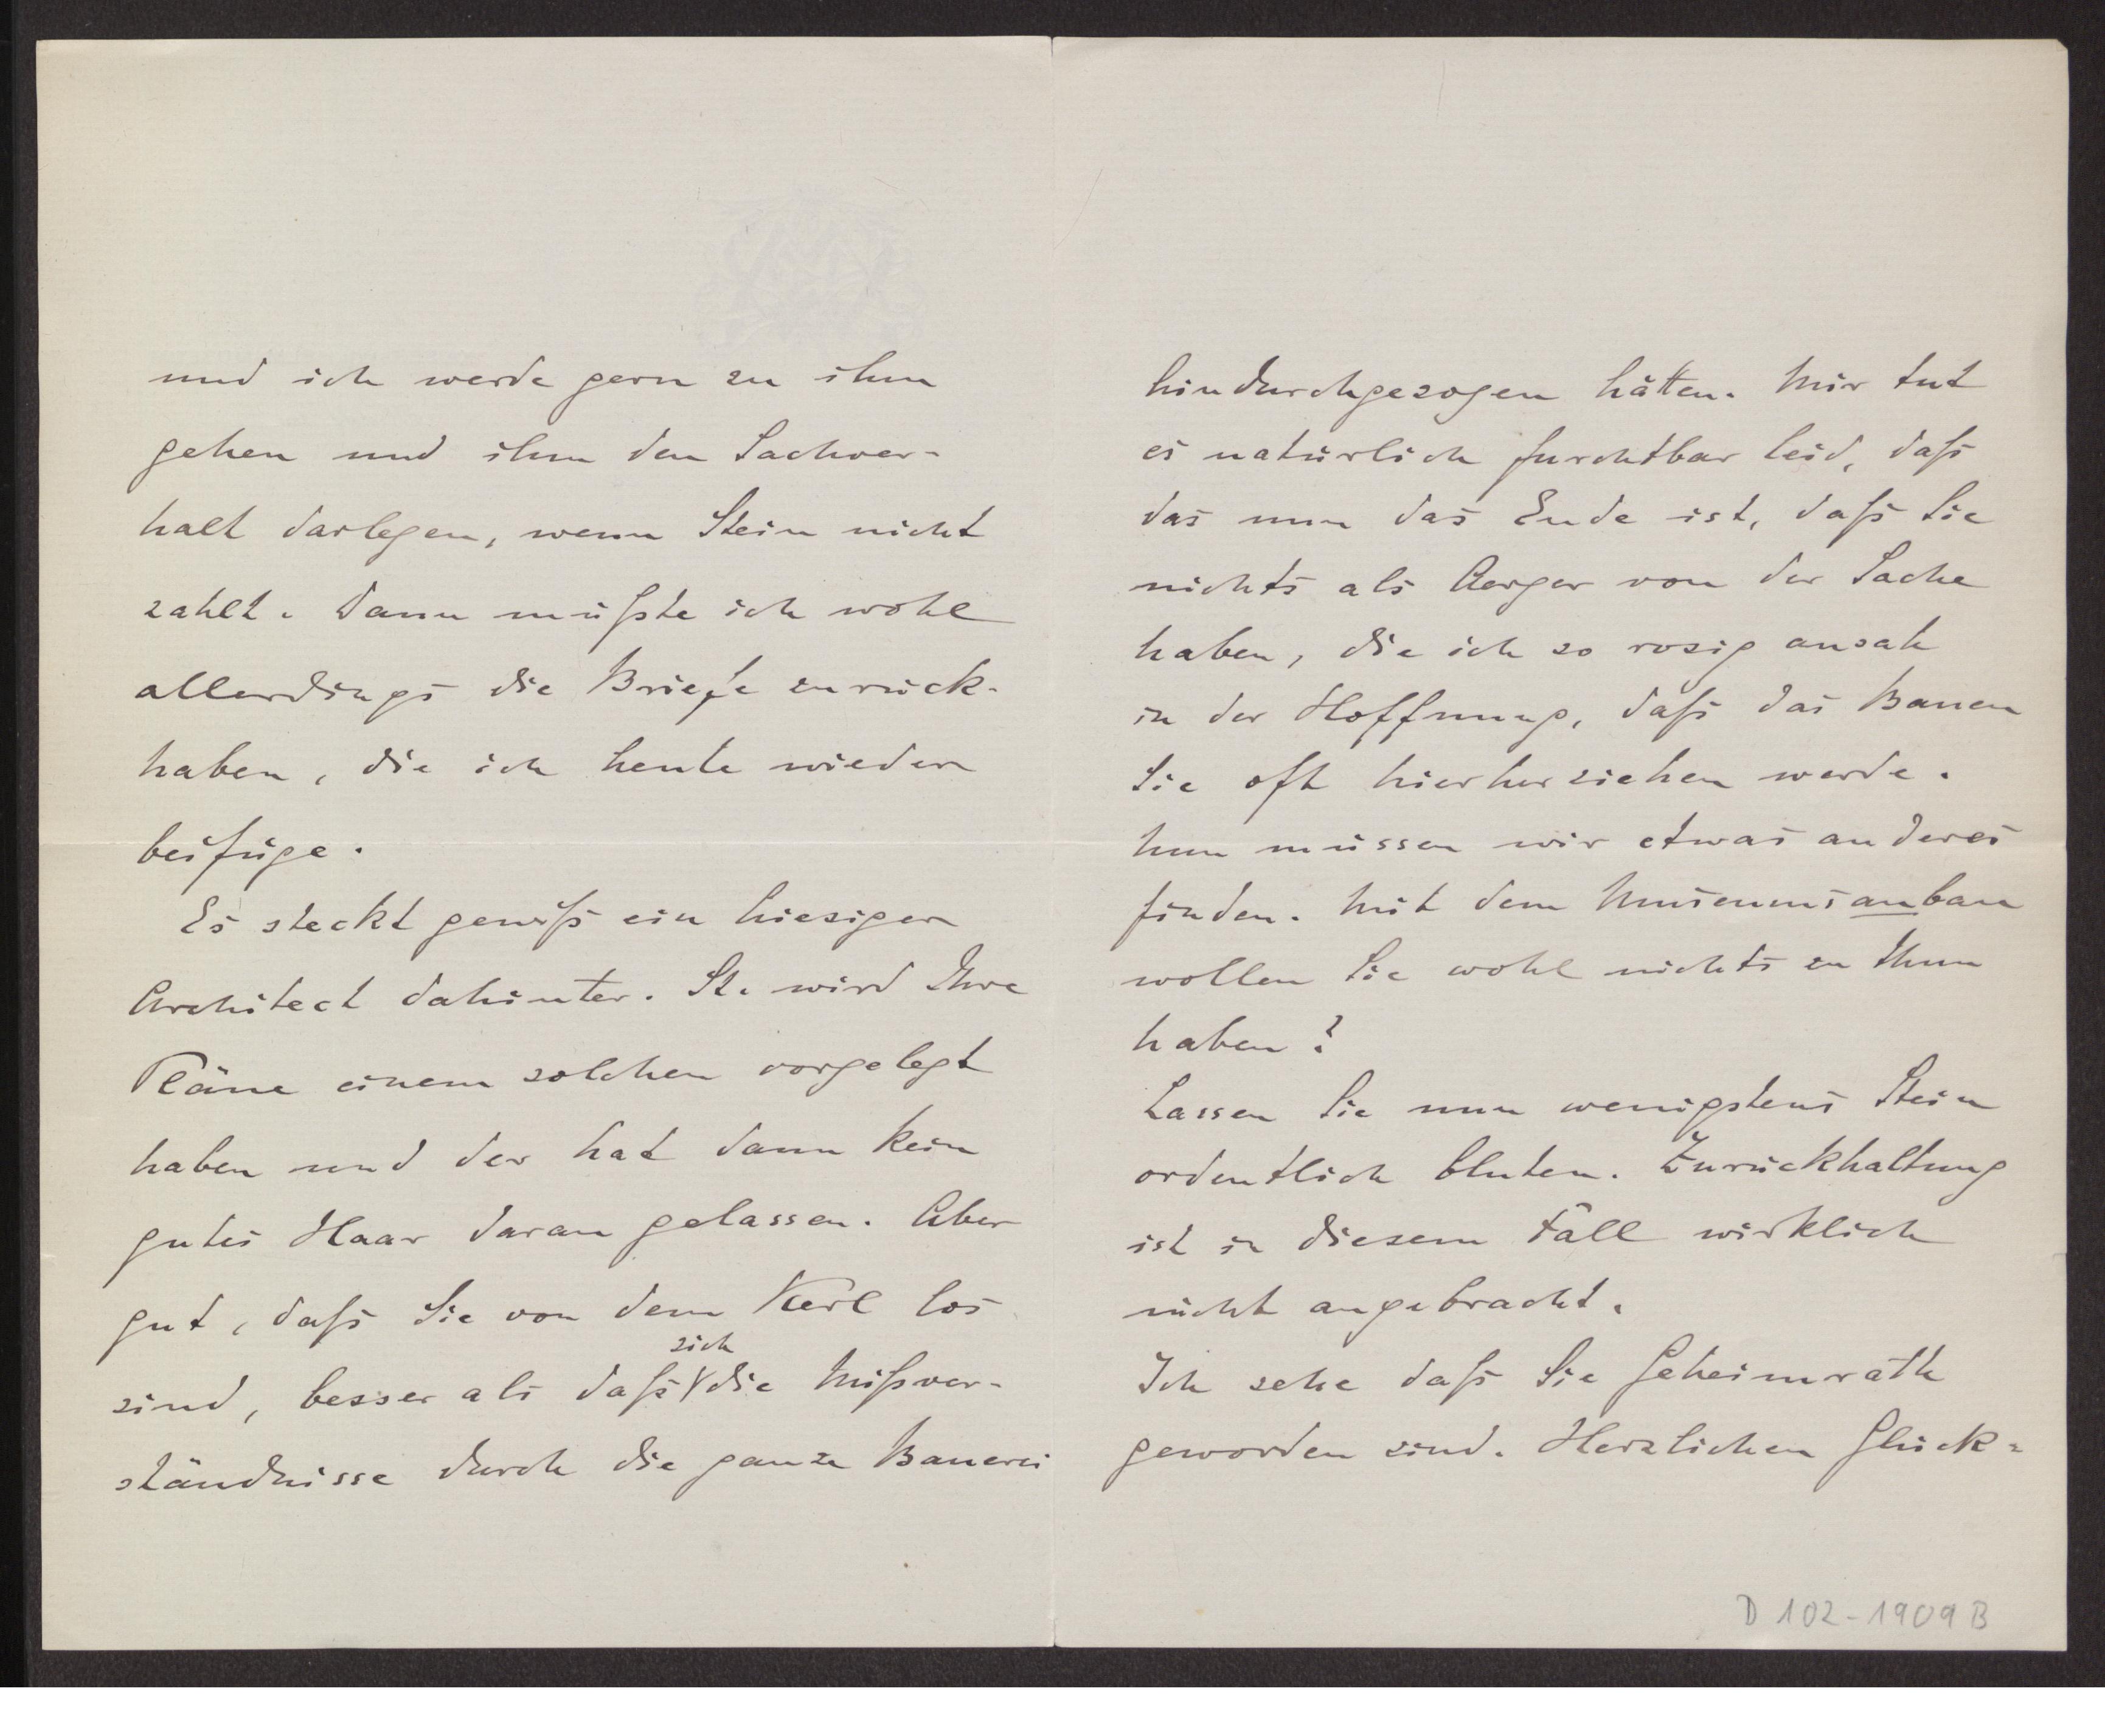 und ich werde gern zu ihm
gehen und ihm den Sachver-
halt darlegen, wenn Stein nicht
zahlt. Dann müßte ich wohl
allerdings die Briefe zurück-
haben, die ich heute wieder
beifüge.
Es steckt gewiß ein hiesiger
Architect dahinter. St. wird Ihre
Pläne einem solchen vorgelegt
haben und der hat dann kein
gutes Haar daran gelassen. Aber
gut, daß Sie von dem Kerl los
sind, besser als daß sich die Mißver-
ständnisse durch die ganze Bauerei
hindurchgezogen hätten. Mir tut
es natürlich furchtbar leid, daß
das nun das Ende ist, daß Sie
nichts als Aerger von der Sache
haben, die ich so rosig ansah
in der Hoffnung, daß das Bauen
Sie oft hierher ziehen werde.
Nun müssen wir etwas anderes
finden. Mit dem Museumsanbau
wollen Sie wohl nichts zu thun
haben?
Lassen Sie nun wenigstens Stein
ordentlich bluten. Zurückhaltung
ist in diesem Fall wirklich
nicht angebracht.
Ich sehe daß Sie Geheimrath
geworden sind. Herzlichen Glück=
D 102-1909 B